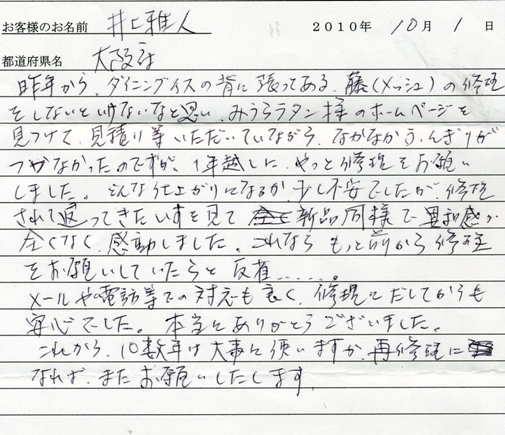 お客様のお名前 井上雅人 2010年 10月 1日
都道府県名 大阪府
昨年から、ダイニングイスの背に張ってある、藤(メッシュ)の修理
をしないといけないなと思い、みうらラタン様のホームページを
見つけて、見積り等いただいていながら、なかなかふんぎりが
つかなかったのですが、1年越しに、やっと修理をお願い
しました。どんな仕上がりになるか、少し不安でしたが、修理
されて返ってきたいすを見て 新品同様で違和感が
全くなく、感動しました。これなら もっと前から修理
をお願いしていたらと 反省……。
メールや電話等での対応も良く、修理にだしてからも
安心でした。本当にありがとうございました。
これから、10数年は大事に使いますが、再修理に
なれば、またお願いしたします。